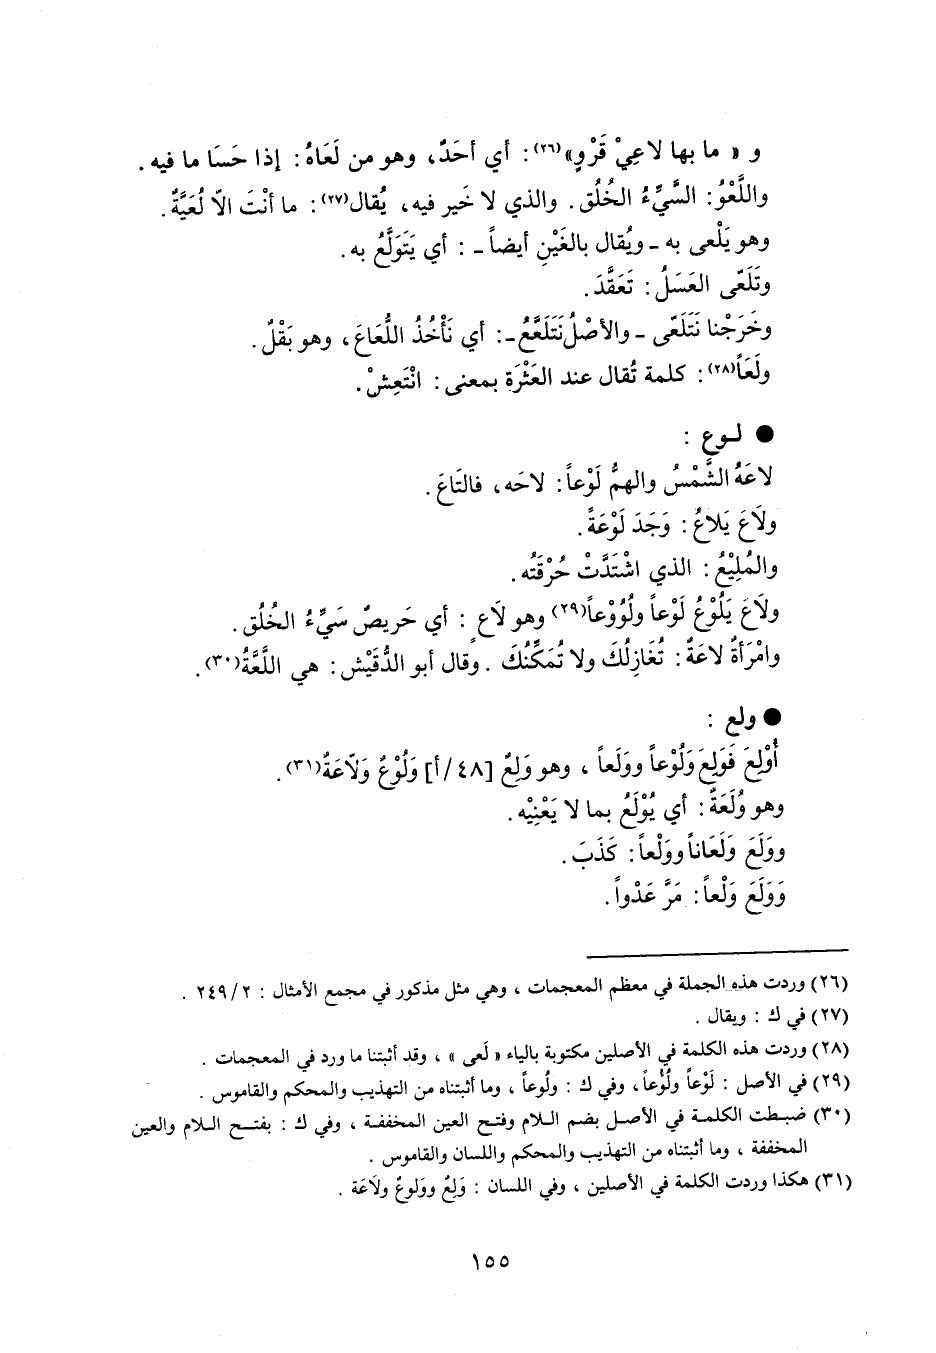 و « ما بها لاعِيْ قَرْوٍ»(٢٦): أي أحَدٌ، وهو من لَعَاهُ: إذا حَسَا ما فيه .
واللَّعْوُ: السَّيِّءُ الخُلُق. والذي لا خَير فيه، يُقال(٢٧): ما أنْتَ الاّ لُعَيَّةٌ.
وهو يَلْعى به ـ ويُقال بالغَيْنِ أيضاً ـ : أي يَتَوَلَّعُ به.
وتَلَعّى العَسَلُ: تَعَقَّدَ.
وخَرَجْنا نَتَلَعّى ـ والأصْلُ نَتَلَعَّعُ ـ: أي نَأْخُذُ اللُّعَاعَ، وهو بَقْلٌ.
ولَعَاً(٢٨): كلمة تُقال عند العَثْرَة بمعنى: انْتَعِشْ.
● لـوع :
لاعَهُ الشَّمْسُ والهمُّ لَوْعاً: لاحَه، فالتَاعَ.
ولَاعَ يَلاعُ: وَجَدَ لَوْعَةً.
والمُلِيْعُ: الذي اشْتَدَّتْ حُرْقَتُه.
ولاَعَ يَلُوْعُ لَوْعاً ولُوُوْعاً(٢٩) وهو لَاعٍ : أي حَريصٌ سَيِّءُ الخُلُق.
وامْرَأةٌ لاعَةٌ: تُغَازِلُكَ ولا تُمَكِّنُكَ . وقال أبو الدُّقَيْش: هي اللَّعَّةُ(٣٠).
● ولع :
أُوْلِعَ فَوَلِعَ وَلُوْعاً ووَلَعاً ، وهو وَلِعٌ [٤٨/أ] وَلُوْعٌ وَلَاّعَةٌ(٣١).
وهو وُلَعَةٌ: أي يُوْلَعُ بما لا يَعْنِيْه.
ووَلَعَ وَلَعَاناً ووَلْعاً: كَذَبَ.
وَوَلَعَ وَلْعاً: مَرَّ عَدْواً.
(٢٦) وردت هذه الجملة في معظم المعجمات ، وهي مثل مذكور في مجمع الأمثال : ٢٤٩/٢ .
(٢٧) في ك : ويقال .
(٢٨) وردت هذه الكلمة في الأصلين مكتوبة بالياء « لَعى » ، وقد أثبتنا ما ورد في المعجمات .
(٢٩) في الأصل : لَوْعاً ولُوْعاً، وفي ك : ولُوعاً ، وما أثبتناه من التهذيب والمحكم والقاموس .
(٣٠) ضبطت الكلمة في الأصل بضم اللام وفتح العين المخففة ، وفي ك : بفتح اللام والعين
المخففة ، وما أثبتناه من التهذيب والمحكم واللسان والقاموس .
(٣١) هكذا وردت الكلمة في الأصلين ، وفي اللسان : وَلِعٌ ووَلوعٌ ولاعَة .
١٥٥